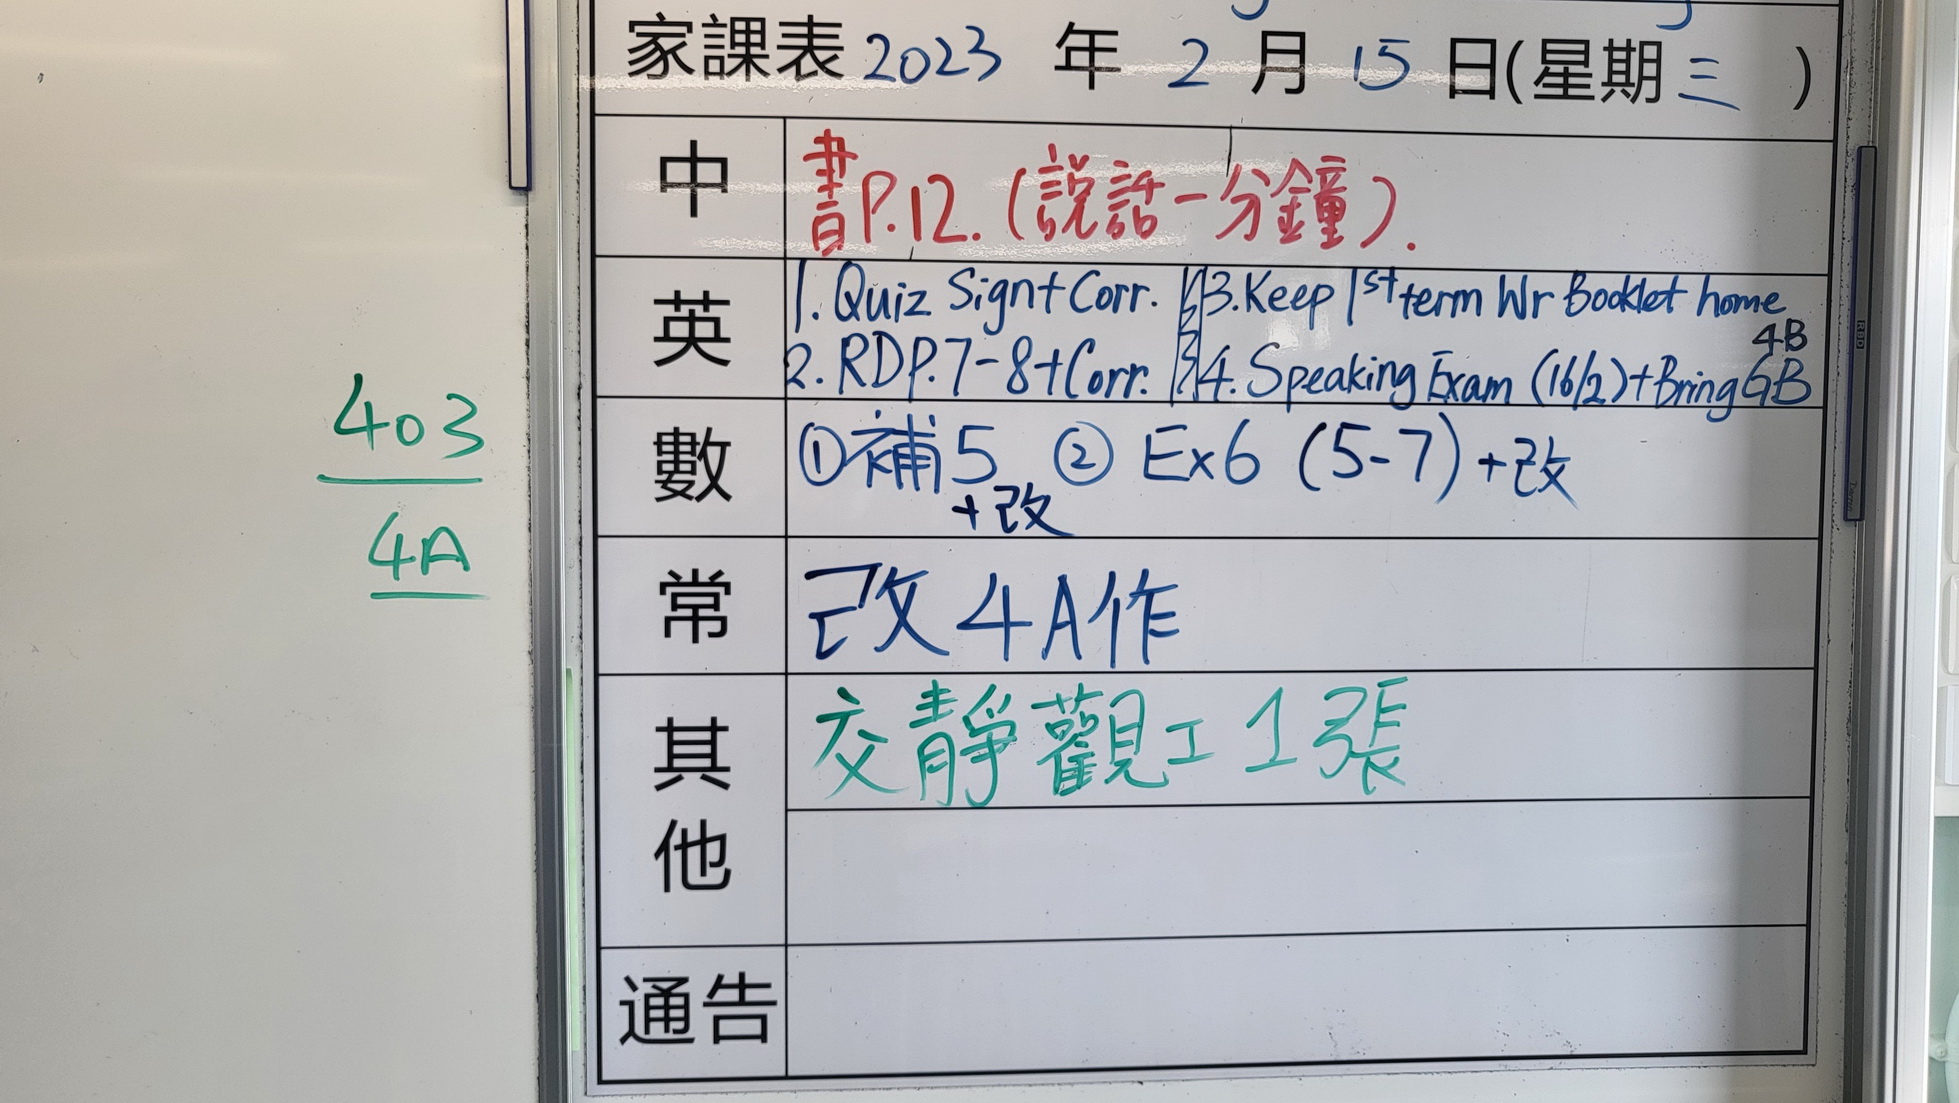 家課表 2023 年 2 月 15 日(星期三 )
中 書P.12. (説話一分鐘).
英 1. Quiz Sign+Corr. 3. Keep 1st term Wr Booklet home
2. RD P.7-8+Corr. 4. Speaking Exam (16/2)+Bring GB 4B
數 ①補5 +改 ② Ex6 (5-7) +改
常 改4A作
其他 交靜觀工1張
通告
403
4A